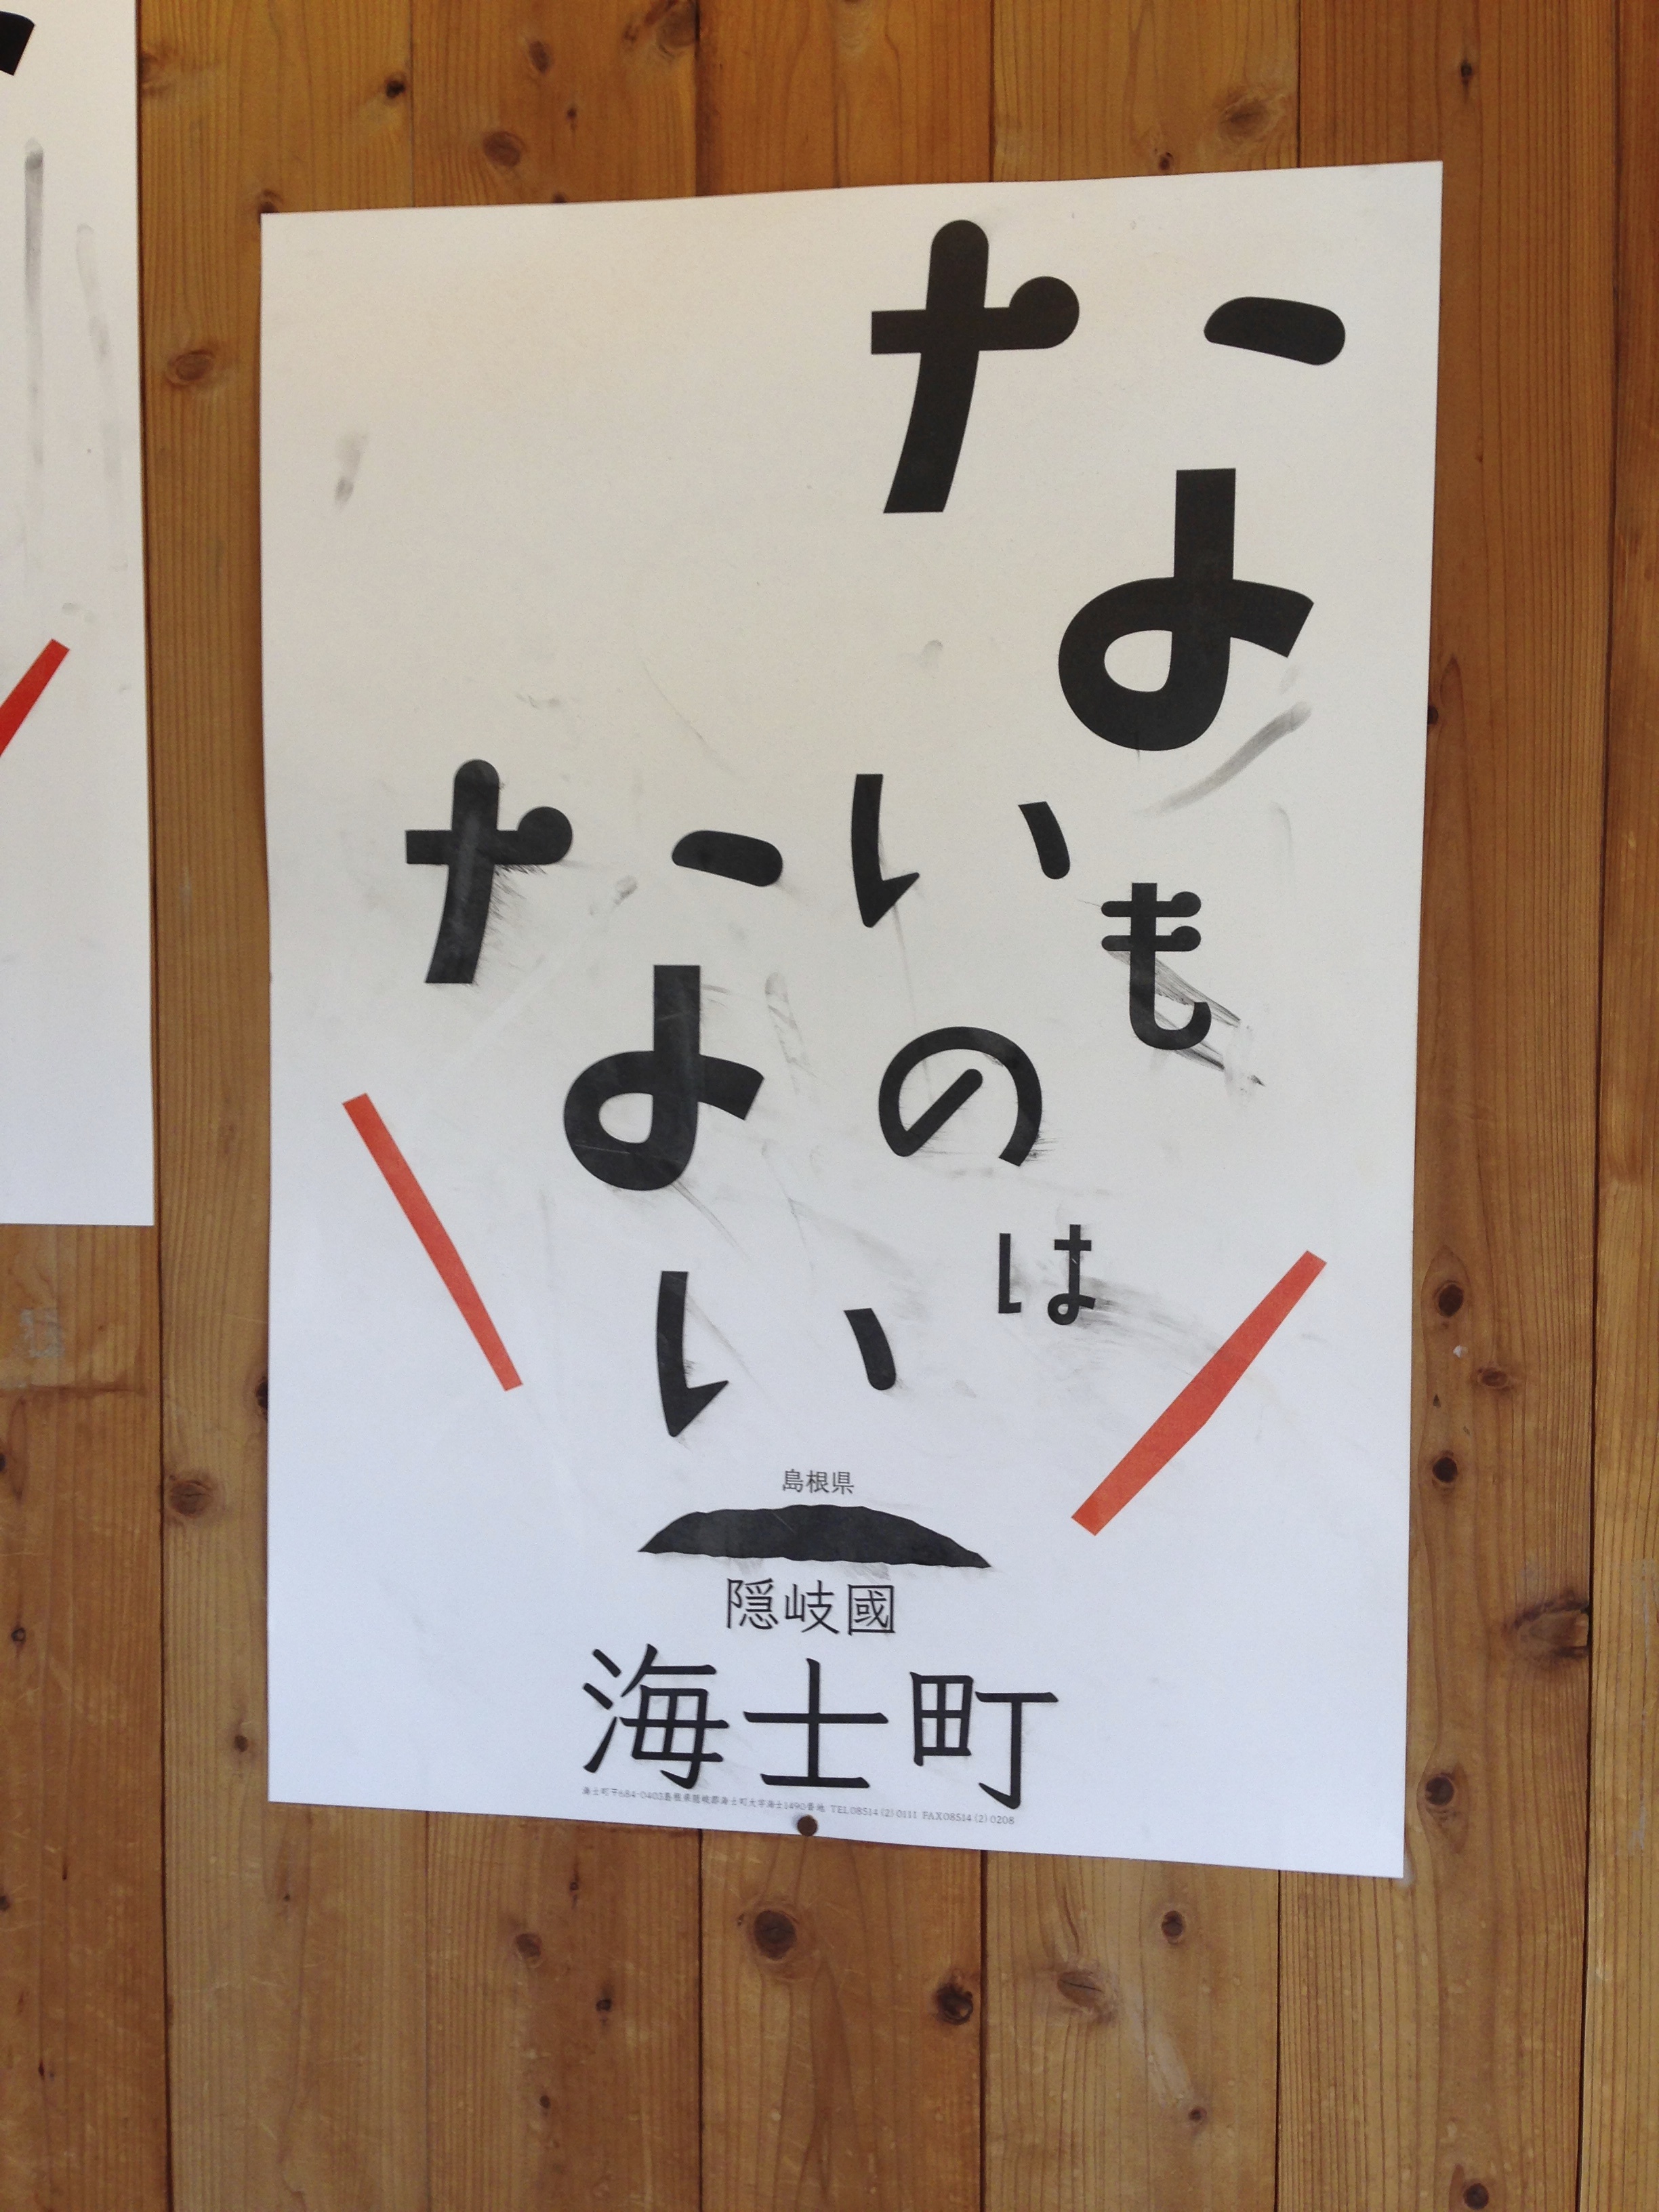 ないものは
ない
島根県
隠岐國
海士町
海士町〒684-0403島根県隠岐郡海士町大字海士1490番地 TEL08514(2)0111 FAX08514(2)0208